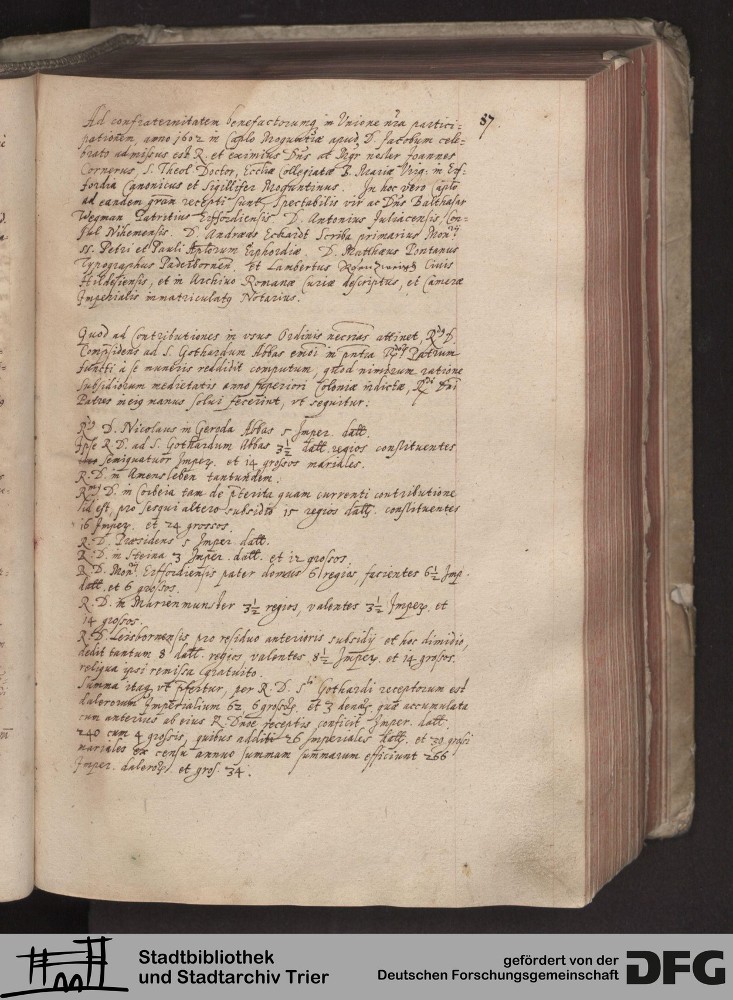 87.
Ad confraternitatem benefactorumq in Unione nra partici=
pationem, anno 1602 in Caplo Moguntiæ apud D. Jacobum cele=
brato admissus est R. et eximius Dns ac Mgr noster Joannes
Cornerus, S. Theol. Doctor, Eccliæ Collegiatæ B. Mariæ Virg: in Erf=
fordia Canonicus et Sigillifer Moguntinus. In hoc vero Caplo
ad eandem gram recepti sunt, Spectabilis vir ac Dns Balthasar
Wegman Patritius Erffordiensis D. Antonius Juliacensis, Con=
sul Nihemensis. D. Andreas Eckardt Scriba primarius Monrij
SS. Petri et Pauli Aplorum Erphordiæ. D. Matthæus Pontanus
Typographus Paderbornen. Et Lambertus Civis
Hildesiensis, et in Archivo Romanæ Curiæ descriptus, et Cameræ
Imperialis immatriculatq Notarius.
Quod ad Contributiones in usus Ordinis necrias attinet, Rdq D.
Compsidens ad S. Gothardum Abbas emoi in pntia Patrum
functi a se muneris reddidit computum, quod nimirum ratione
subsidiorum medietatis anno superiori Coloniæ indictæ, Rdi Dni
Patres in eiq manus solvi fecerint, ut sequitur:
D. Nicolaus in Gereda Abbas 5 Imper. dall.
Ipse R. D. ad S. Gothardum Abbas 3½ dall. regios constituentes
semiquatuor Imper. et 14 grossos mariales.
R. D. in Amensleben tantundem.
D. in Corbeia tam de pterita quam currenti contributione
id est, pro sesqui altero subsidio 15 regios dall. constituentes
16 Imper. et 24 grossos.
R. D. Præsidens 5 Imper. dall.
R. D. in Steina 3 Imper. dall. et 12 grossos.
R. D. Monrij Erffordiensis pater domus 6 regios facientes 6½ Imp.
dall. et 6 grossos.
R. D. in Marienmunster 3½ regios, valentes 3½ Imper. et
14 grossos.
R. D. Leisbornensis pro residuo anterioris subsidij et hoc dimidio,
dedit tantum 8 dall. regios valentes 8½ Imper. et 14 grossos.
reliqua ipsi remissa gratuito.
Summa itaq ut pfertur, per R. D. Sti Gothardi receptorum est
dalerorum Imperialium 62 6 grossor. et 3 denar. quæ accumulata
cum anterius ab eius R. Dnoe receptis conficit Imper. dall.
240 cum 4 grossis, quibus additi 26 Imperiales dall. et 30 grossi
mariales ex censu annuo summam summarum efficiunt 266
Imper. daleror. et gros. 34.
Stadtbibliothek
und Stadtarchiv Trier
gefördert von der
Deutschen Forschungsgemeinschaft
DFG